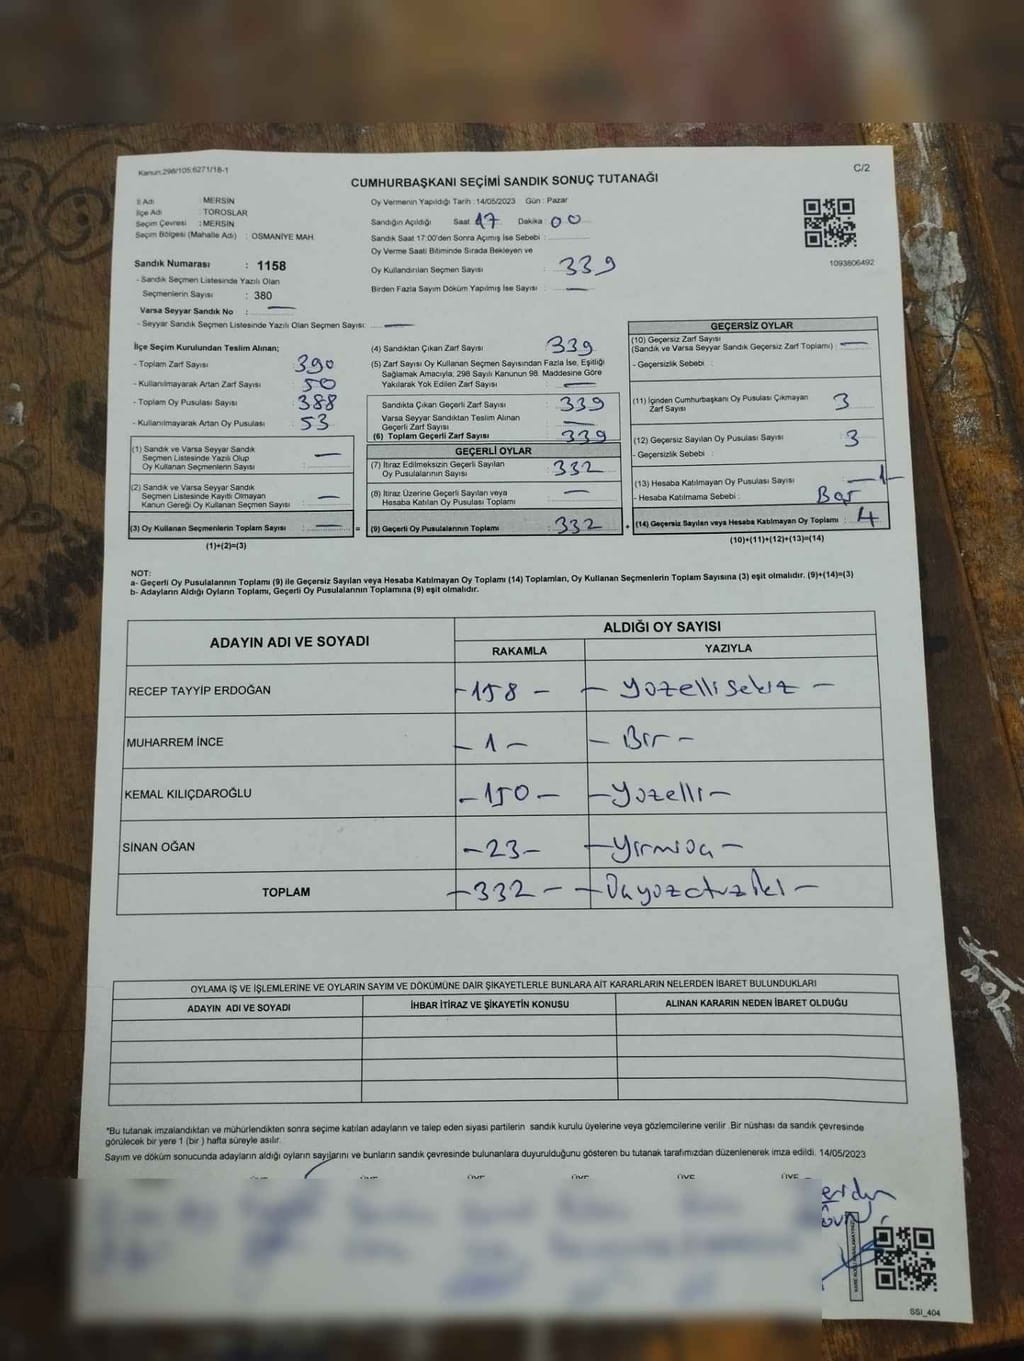 Kanun:298/105;6271/18-1
C/2
CUMHURBAŞKANI SEÇİMİ SANDIK SONUÇ TUTANAĞI
İl Adı : MERSİN
İlçe Adı : TOROSLAR
Seçim Çevresi : MERSİN
Seçim Bölgesi (Mahalle Adı) : OSMANİYE MAH.
Sandık Numarası : 1158
- Sandık Seçmen Listesinde Yazılı Olan
Seçmenlerin Sayısı : 380
Varsa Seyyar Sandık No : —
- Seyyar Sandık Seçmen Listesinde Yazılı Olan Seçmen Sayısı: —
Oy Vermenin Yapıldığı Tarih : 14/05/2023 Gün : Pazar
Sandığın Açıldığı Saat 17 Dakika 00
Sandık Saat 17:00'den Sonra Açılmış İse Sebebi :
Oy Verme Saati Bitiminde Sırada Bekleyen ve
Oy Kullandırılan Seçmen Sayısı : 339
Birden Fazla Sayım Döküm Yapılmış İse Sayısı : —
1093806492
İlçe Seçim Kurulundan Teslim Alınan;
- Toplam Zarf Sayısı : 390
- Kullanılmayarak Artan Zarf Sayısı : 50
- Toplam Oy Pusulası Sayısı : 388
- Kullanılmayarak Artan Oy Pusulası : 53
(1) Sandık ve Varsa Seyyar Sandık
Seçmen Listesinde Yazılı Olup
Oy Kullanan Seçmenlerin Sayısı : —
(2) Sandık ve Varsa Seyyar Sandık
Seçmen Listesinde Kayıtlı Olmayan
Kanun Gereği Oy Kullanan Seçmen Sayısı : —
(3) Oy Kullanan Seçmenlerin Toplam Sayısı : — =
(1)+(2)=(3)
(4) Sandıktan Çıkan Zarf Sayısı : 339
(5) Zarf Sayısı Oy Kullanan Seçmen Sayısından Fazla İse, Eşitliği
Sağlamak Amacıyla, 298 Sayılı Kanunun 98. Maddesine Göre
Yakılarak Yok Edilen Zarf Sayısı : —
Sandıkta Çıkan Geçerli Zarf Sayısı : 339
Varsa Seyyar Sandıktan Teslim Alınan
Geçerli Zarf Sayısı : —
(6) Toplam Geçerli Zarf Sayısı : 339
GEÇERLİ OYLAR
(7) İtiraz Edilmeksizin Geçerli Sayılan
Oy Pusulalarının Sayısı : 332
(8) İtiraz Üzerine Geçerli Sayılan veya
Hesaba Katılan Oy Pusulası Toplamı : —
(9) Geçerli Oy Pusulalarının Toplamı : 332 +
GEÇERSİZ OYLAR
(10) Geçersiz Zarf Sayısı
(Sandık ve Varsa Seyyar Sandık Geçersiz Zarf Toplamı) : —
- Geçersizlik Sebebi :
(11) İçinden Cumhurbaşkanı Oy Pusulası Çıkmayan
Zarf Sayısı : 3
(12) Geçersiz Sayılan Oy Pusulası Sayısı : 3
- Geçersizlik Sebebi :
(13) Hesaba Katılmayan Oy Pusulası Sayısı : —1—
- Hesaba Katılmama Sebebi :
(14) Geçersiz Sayılan veya Hesaba Katılmayan Oy Toplamı : 4
(10)+(11)+(12)+(13)=(14)
NOT:
a- Geçerli Oy Pusulalarının Toplamı (9) ile Geçersiz Sayılan veya Hesaba Katılmayan Oy Toplamı (14) Toplamları, Oy Kullanan Seçmenlerin Toplam Sayısına (3) eşit olmalıdır. (9)+(14)=(3)
b- Adayların Aldığı Oyların Toplamı, Geçerli Oy Pusulalarının Toplamına (9) eşit olmalıdır.
ADAYIN ADI VE SOYADI
ALDIĞI OY SAYISI
RAKAMLA YAZIYLA
RECEP TAYYİP ERDOĞAN -158- - yüzellisekiz -
MUHARREM İNCE -1- - Bir -
KEMAL KILIÇDAROĞLU -150- - Yüzelli -
SİNAN OĞAN -23- - Yirmiüç -
TOPLAM -332- - Üçyüzotuziki -
OYLAMA İŞ VE İŞLEMLERİNE VE OYLARIN SAYIM VE DÖKÜMÜNE DAİR ŞİKAYETLERLE BUNLARA AİT KARARLARIN NELERDEN İBARET BULUNDUKLARI
ADAYIN ADI VE SOYADI İHBAR İTİRAZ VE ŞİKAYETİN KONUSU ALINAN KARARIN NEDEN İBARET OLDUĞU
*Bu tutanak imzalandıktan ve mühürlendikten sonra seçime katılan adayların ve talep eden siyasi partilerin sandık kurulu üyelerine veya gözlemcilerine verilir. Bir nüshası da sandık çevresinde
görülecek bir yere 1 (bir ) hafta süreyle asılır.
Sayım ve döküm sonucunda adayların aldığı oyların sayılarını ve bunların sandık çevresinde bulunanlara duyurulduğunu gösteren bu tutanak tarafımızdan düzenlenerek imza edildi. 14/05/2023
SSI_404